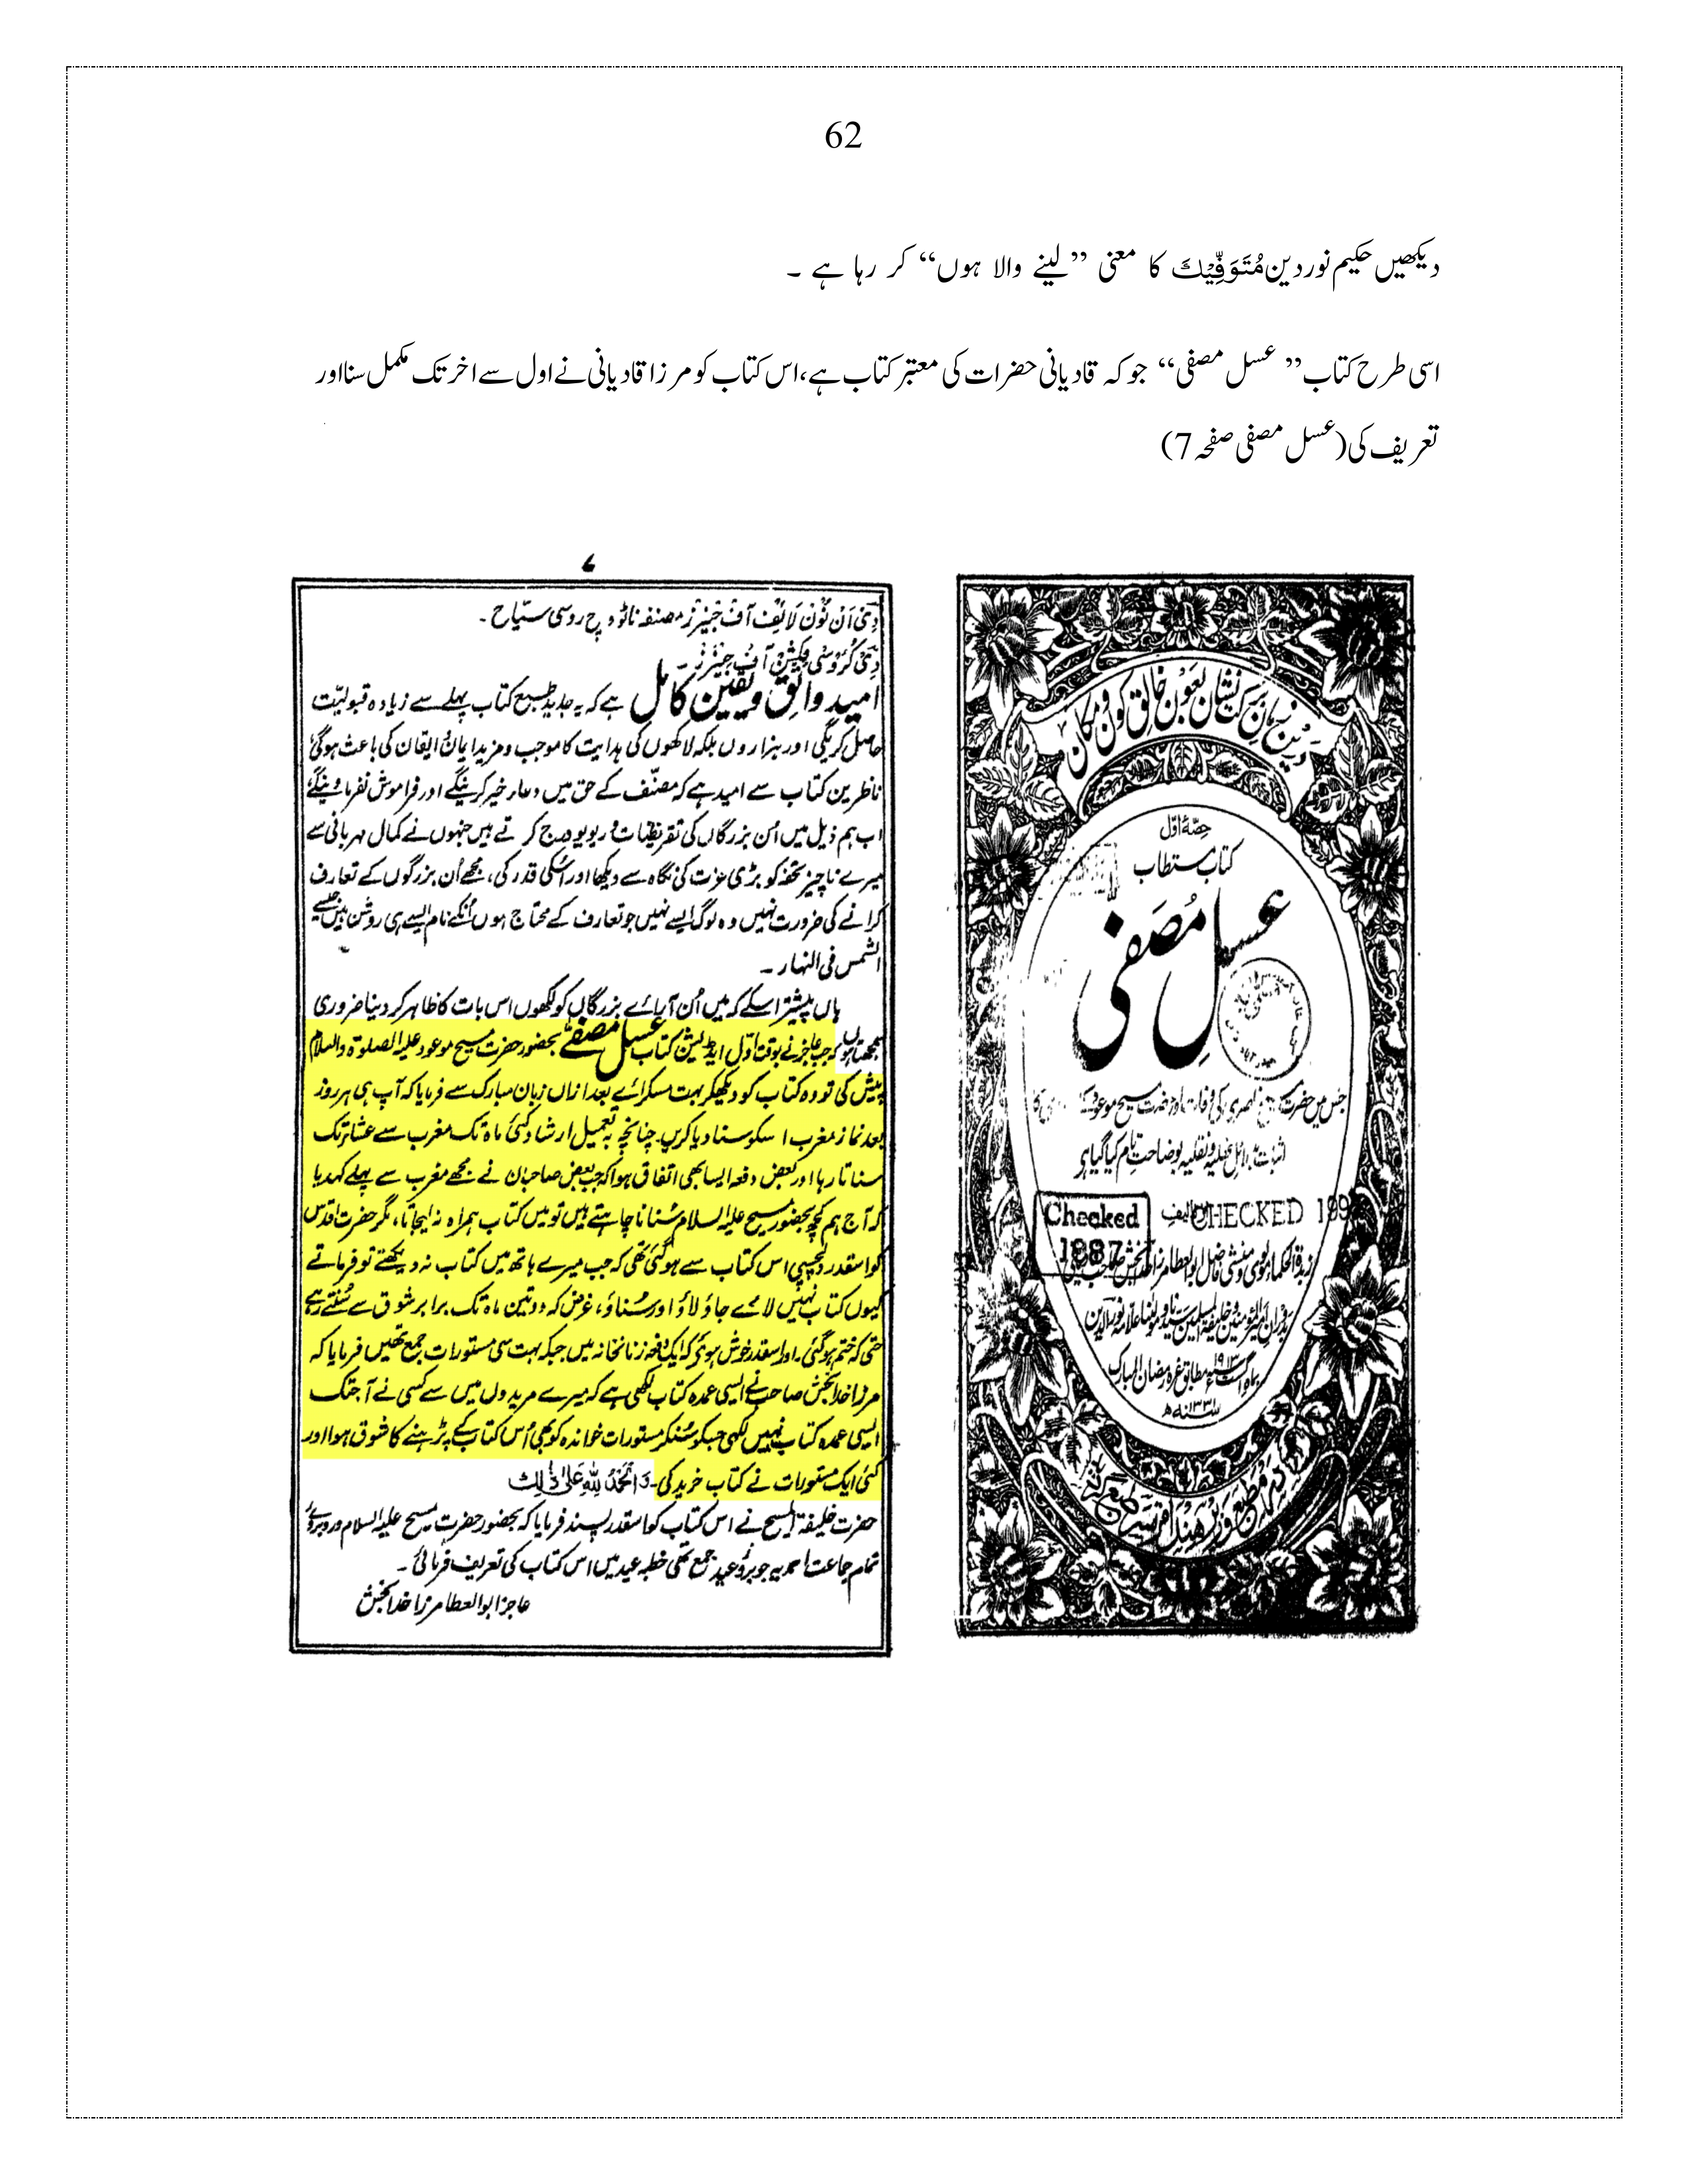 62
دیکھیں حکیم نور دین مُتَوَفِّيْكَ کا معنی ”لینے والا ہوں“ کر رہا ہے ۔
اسی طرح کتاب ”عسل مصفی“ جو کہ قادیانی حضرات کی معتبر کتاب ہے،اس کتاب کو مرزا قادیانی نے اول سے اخر تک مکمل سنا اور
تعریف کی(عسل مصفی صفحہ 7)
حصّہ اوّل
کتاب مستطاب
عسل مُصَفی
Checked
CHECKED
1887
۷
دِی اَن نَون لَائِف آف جِیزز مصنفہ ناٹووچ روسی سیّاح۔
دِی کُروسی فِکیشن آف جِیزز۔
امید واثق و یقین کامل ہے کہ یہ جدید طبع کتاب پہلے سے زیادہ قبولیّت
حاصل کریگی اور ہزاروں بلکہ لاکھوں کی ہدایت کا موجب و مزید ایمان و ایقان کی باعث ہوگی
ناظرین کتاب سے امید ہے کہ مصنّف کے حق میں دعاء خیر کرینگے اور فراموش نفرماوینگے
اب ہم ذیل میں اُن بزرگاں کی تقریظات و ریویو درج کرتے ہیں جنہوں نے کمال مہربانی سے
میرے ناچیز تحفہ کو بڑی عزت کی نگاہ سے دیکھا اور اسکی قدر کی، مجھے اُن بزرگوں کے تعارف
کرانے کی ضرورت نہیں وہ لوگ ایسے نہیں جو تعارف کے محتاج ہوں اُنکے نام ایسے ہی روشن ہیں جیسے
الشمس فی النہار ۔
ہاں پیشتر اسکے کہ میں اُن آرائے بزرگاں کو لکھوں اس بات کا ظاہر کر دینا ضروری
سمجھتا ہوں کہ جب عاجز نے بوقت اوّل ایڈیشن کتاب عسل مصفّٰے بحضور حضرت مسیح موعود علیہ الصلوۃ والسلام
پیش کی تو وہ کتاب کو دیکھکر بہت مسکرائے بعد ازاں زبان مبارک سے فرمایا کہ آپ ہی ہر روز
بعد نماز مغرب اسکو سنا دیا کریں۔ چنانچہ بہ تعمیل ارشاد کئی ماہ تک مغرب سے عشاء تک
سناتا رہا اور بعض دفعہ ایسا بھی اتفاق ہوا کہ جب بعض صاحبان نے مجھے مغرب سے پہلے کہدیا
کہ آج ہم کچھ بحضور مسیح علیہ السلام سُنانا چاہتے ہیں تو میں کتاب ہمراہ نہ لیجاتا، مگر حضرت اقدس
کو اسقدر دلچسپی اس کتاب سے ہوگئی تھی کہ جب میرے ہاتھ میں کتاب نہ دیکھتے تو فرماتے
کیوں کتاب نہیں لائے جاؤ لاؤ اور سُناؤ، غرض کہ دو تین ماہ تک برابر شوق سے سُنتے رہے
حتی کہ ختم ہوگئی۔ اور اسقدر خوش ہوئی کہ ایک دفعہ زنانخانہ میں جبکہ بہت سی مستورات جمع تھیں فرمایا کہ
مرزا خدا بخش صاحب نے ایسی عمدہ کتاب لکھی ہے کہ میرے مریدوں میں سے کسی نے آجتک
ایسی عمدہ کتاب نہیں لکھی جسکو سُنکر مستورات خواندہ کو بھی اُس کتاب کے پڑہنے کا شوق ہوا اور
کئی ایک مستورات نے کتاب خرید کی۔ وَالحَمدُ لِلّٰہِ عَلیٰ ذٰلِکَ
حضرت خلیفۃ المسیح نے اس کتاب کو اسقدر پسند فرمایا کہ بحضور حضرت مسیح علیہ السلام و روبروئے
تمام جماعت احمدیہ جو بروز عید جمع تھی خطبہ عید میں اس کتاب کی تعریف فرمائی۔
عاجز ابو العطا مرزا خدا بخش